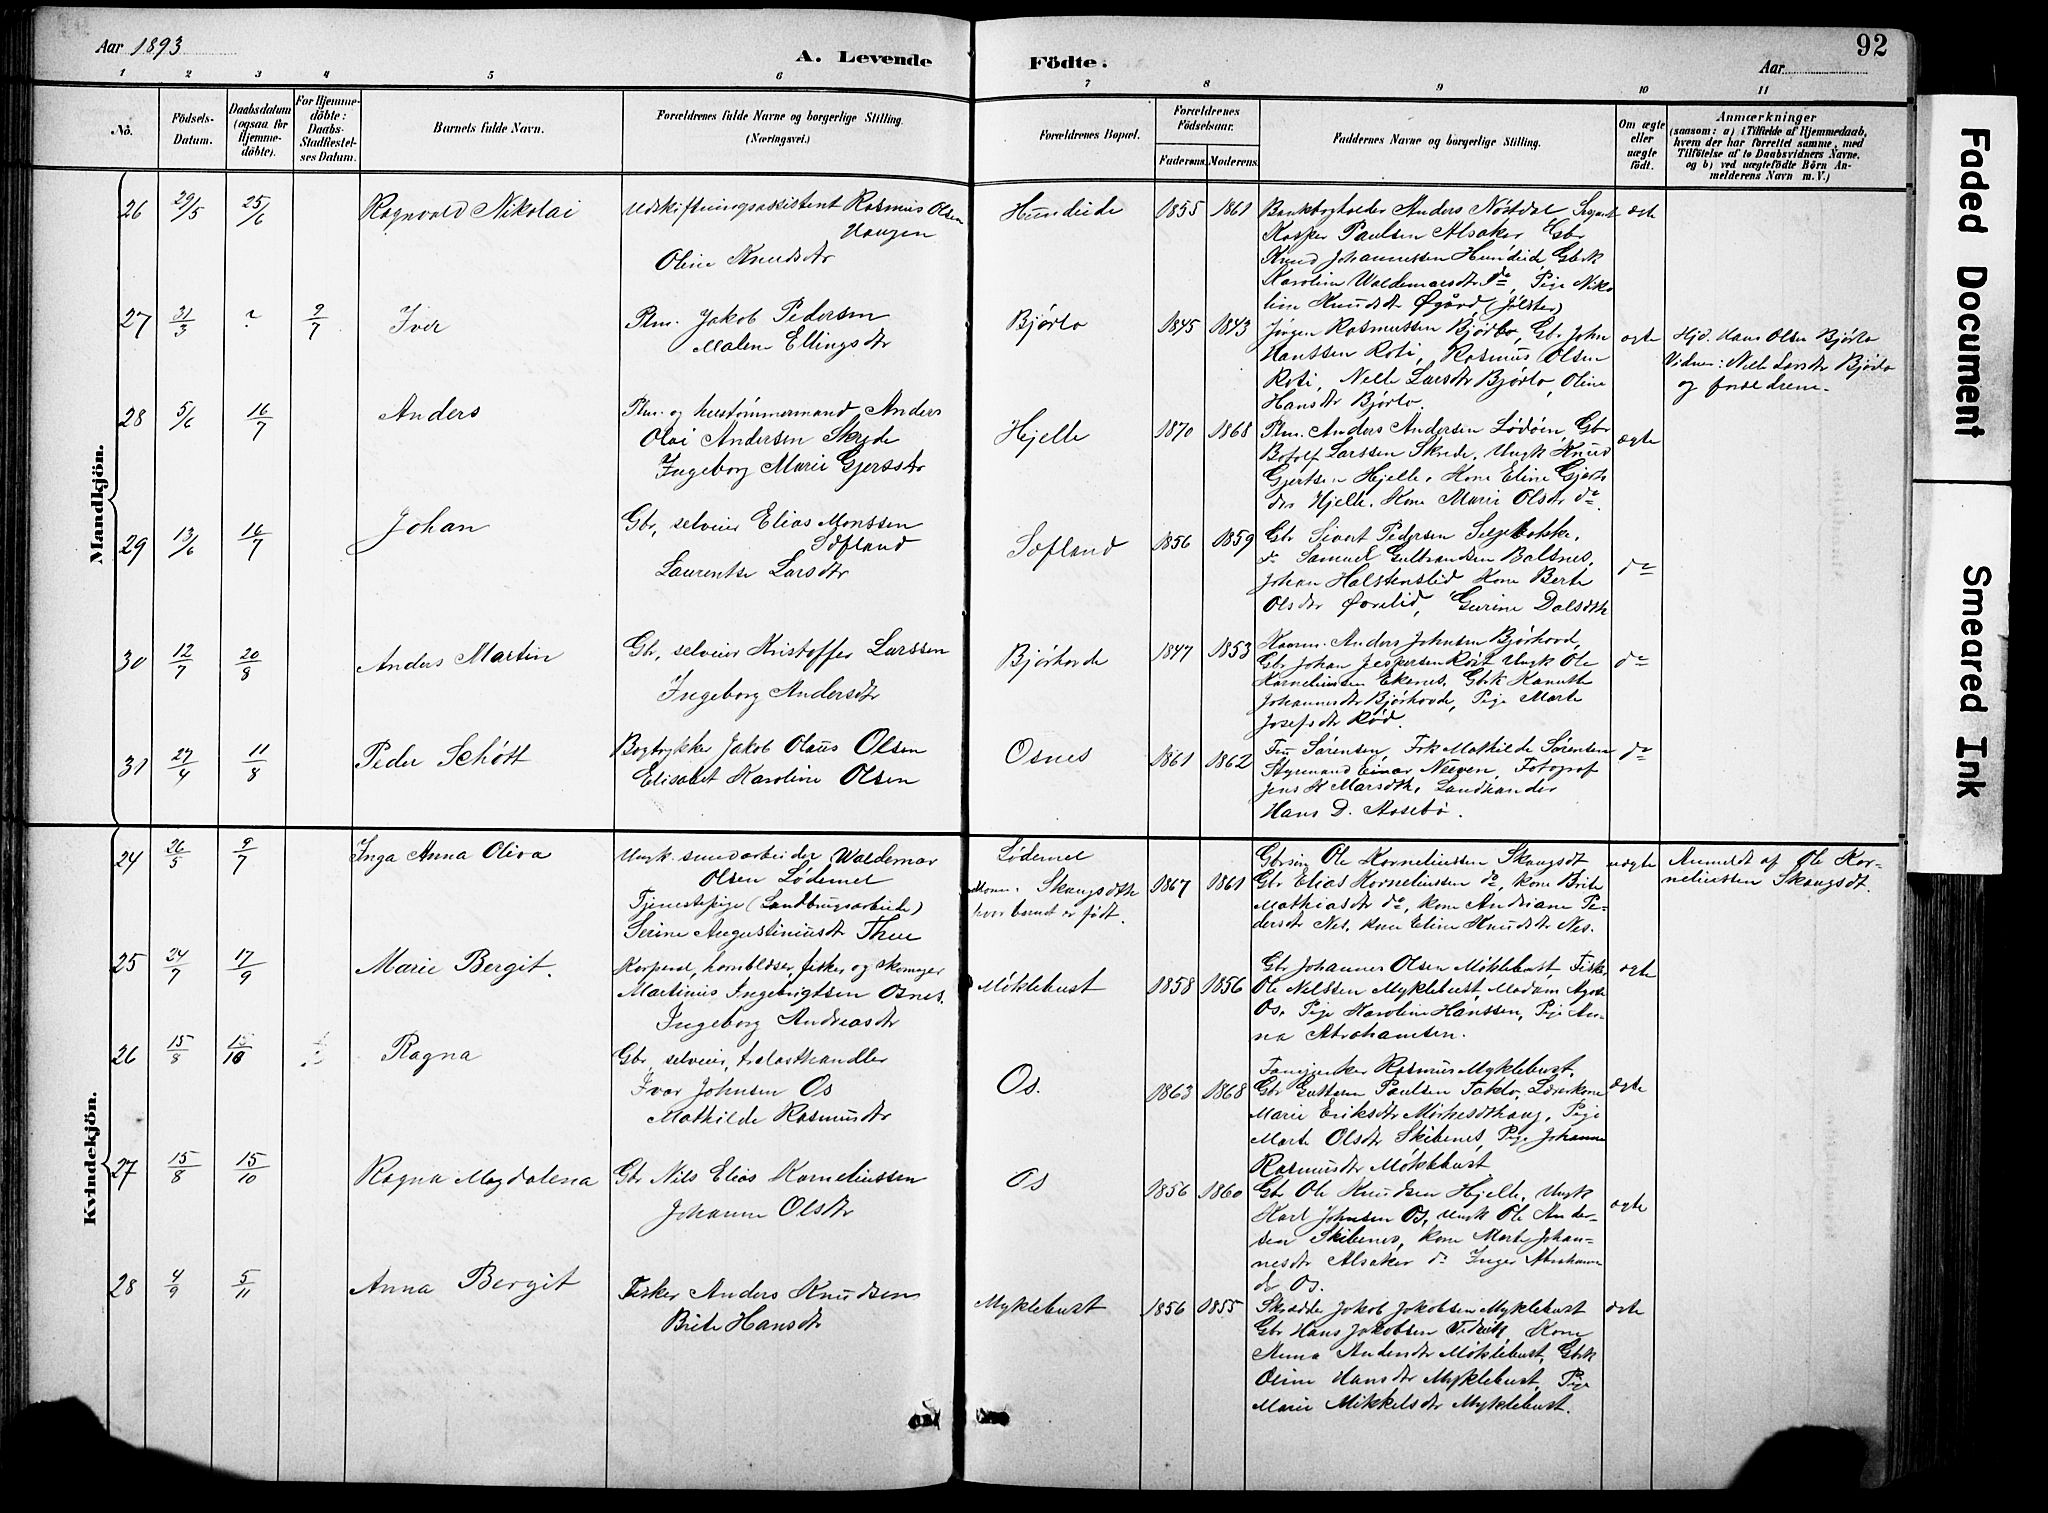 Aar 1893
A. Levende
Födte.
Aar
92
1 2 3 4 5 6 7 8 9 10 11
No.
Födsels-
Datum.
Daabsdatum
(ogsaa for
Hjemme-
döbte).
For Hjemme-
döbte:
Daabs-
Stadfæstel-
ses Datum.
Barnets fulde Navn.
Forældrenes fulde Navne og borgerlige Stilling.
(Næringsvei.)
Forældrenes Bopæl.
Forældrenes
Födselsaar.
Faderens. Moderens.
Faddernes Navne og borgerlige Stilling.
Om ægte
eller
uægte
födt.
Anmærkninger
(saasom: a) i Tilfælde af Hjemmedaab,
hvem der har forrettet samme, med
Tilföielse af to Daabsvidners Navne,
og b) ved uægtefödte Börn An-
melderens Navn m. V.)
Mandkjön.
26 29/5 25/6 Ragnvald Nikolai
Udskiftningsassistent Rasmus Olsen
Haugen
Oline Knudsdtr
Hundeide 1855 1861
Bankbogholder Anders Nøstdal Sergeant
Kasper Paulsen Alsaker Gbr
Knud Johannessen Hundeid Gbrk
Karoline Waldemarsdtr do, Pige Niko
line Knudsdtr Øgård (Jølster)
ægte
27 31/3 ? 9/7 Iver
Plm. Jakob Pedersen
Malene Ellingsdtr
Bjørlo 1845 1843
Jørgen Rasmussen Bjørlo, Gbr. John
Hanssen Roti, Rasmus Olsen
Roti, Nelle Larsdtr Bjørlo, Oline
Hansdtr Bjørlo.
ægte
Hjd. Hans Olsen Bjørlo
Vidner: Nelle Larsdtr Bjørlo
og forældrene.
28 5/6 16/7 Anders
Plm. og hustømmermand Anders
Olai Andersen Skrede
Ingeborg Marie Gjertsdtr
Hjelle 1870 1868
Plm. Anders Andersen Lødøen, Gbr
Botolf Larssen Skrede, Ungk Knud
Gjertsen Hjelle, Kone Eline Gjerts
dtr Hjelle, Kone Marie Olsdtr do.
ægte
29 13/6 16/7 Johan
Gbr, selveier Elias Monssen
Sæfland
Laurentse Larsdtr
Sæfland 1856 1859
Gbr Sivert Pedersen
do Samuel Gulbrandsen Balsnes,
Johan Halstenslid Kone Berte
Olsdtr Øvrelid, Gurine Dalsdtr
do
30 12/7 20/8 Anders Martin
Gbr, selveier Kristoffer Larssen
Ingeborg Andersdtr
Bjørhovde 1847 1853
Kaarm. Anders Johnsen Bjørhovd,
Gbr Johan Jespersen Rød Ungk Ole
Korneliussen Ekenes, Gbrk Kanutte
Johannesdtr Bjørhovde, Pige Marte
Josefsdtr Rød.
do
31 27/4 11/8 Peder Schøtt
Bogtrykker Jakob Olaus Olsen
Elisabet Karoline Olsen
Osnes 1861 1862
Fru Sørensen, Frk Mathilde Sørensen
Styrmand Einar Neeven, Fotograf
Jens K Marsdth, Landhandler
Hans D. Aasebø.
do
Kvindekjön.
24 26/5 9/7 Inga Anna Oliva
Ungk. smedarbeider Waldemar
Olsen Lødemel
Tjenestepige (Landbrugsarbeide)
Serine Augustinusdtr Thue
Lødemel
Mor. Skaugsdth
hvor barnet er født.
1867 1861
Gbrsøn Ole Korneliussen Skaugsdt
Gbr Elias Korneliussen do, kone Brite
Mathiasdtr do, kone Andriane Pe-
dersdtr Nes, kone Eline Knudsdtr Nes.
uægte
Anmeldt af Ole Kor-
neliussen Skaugsdt.
25 24/7 17/9 Marie Bergit.
Korporal, hornblæser, fisker og skomager
Martinus Ingebrigtsen Osnes.
Ingeborg Andreasdtr
Møklebust 1858 1856
Gbr Johannes Olsen Møklebust, Fisker
Ole Nilssen Myklebust, Madam Agote
Os, Pige Karoline Hanssen, Pige An-
na Abrahamsen.
ægte
26 15/8 15/10 Ragna
Gbr, selveier, trelasthandler
Ivar Johnsen Os
Mathilde Rasmusdtr
Os. 1863 1868
Rasmus Myklebust,
Gbr Guttorm Paulsen Taklo, Lærerkone
Marie Eriksdtr Mörkesdthaug, Pige
Marte Olsdtr Skibenes, Pige Johanne
Rasmusdtr Møklebust
ægte
27 15/8 15/10 Ragna Magdalena
Gbr Nils Elias Korneliussen
Johanne Olsdtr
Os 1856 1860
Gbr Ole Knudsen Hjelle, Ungk
Karl Johnsen Os, ungk Ole Ander-
sen Skibenes, kone Marte Johan-
nesdtr Alsaker do Inger Abraham
dtr Os.
ægte
28 4/9 5/11 Anna Bergit
Fisker Anders Knudsen
Brite Hansdtr
Myklebust 1856 1855
Skrædder Jakob Jakobsen Myklebust
Gbr Hans Jakobsen Kone
Anna Andersdtr Møklebust, Gbrk
Oline Hansdtr Myklebust, Pige
Marie Mikkelsdtr Myklebust.
ægte
Faded Document
Smeared Ink